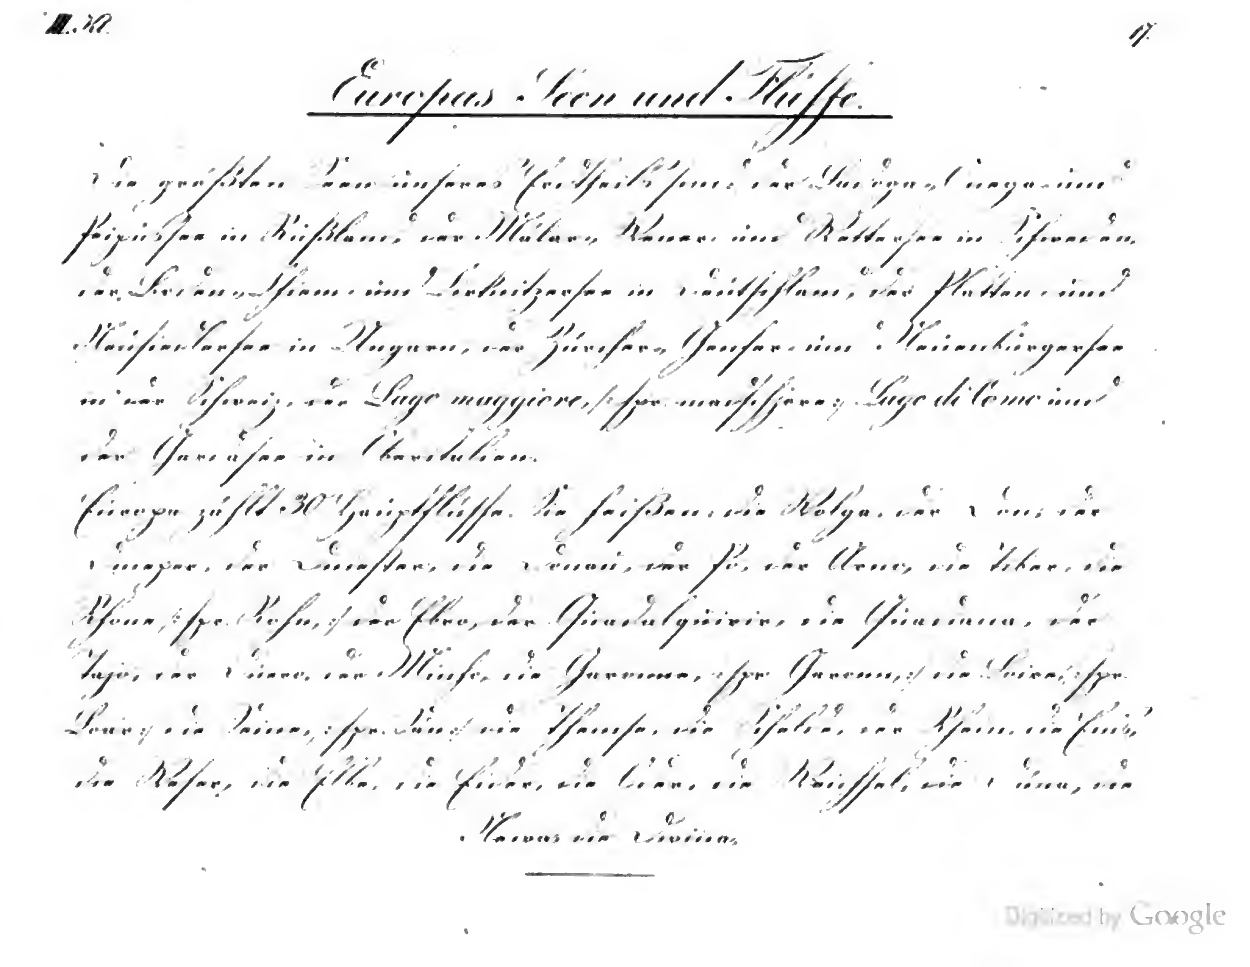 III. Kl. 17.
Europas Seen und Flüsse.
Die größten Seen unseres Erdtheils sind: der Ladoga-, Onega- und
Peipussee in Rußland, der Mälar-, Wener- und Wettersee in Schweden,
der Boden-, Chiem- und Zirknitzersee in Deutschland, der Platten- und
Neusiedlersee in Ungarn, der Zürcher-, Genfer- und Neuenburgersee
in der Schweiz, der Lago maggiore, /: spr. madschjore :/ Lago di Como und
der Gardasee in Oberitalien.
Europa zählt 30 Hauptflüsse. Sie heißen: die Wolga, der Don, der
Dnieper, der Dniester, die Donau, der Po, der Arno, die Tiber, die
Rhone, /: spr. Rohn, :/ der Ebro, der Guadalquivir, die Guadiana, der
Tajo, der Duero, der Minho, die Garonne, /: spr. Garonn, :/ die Loire, /: spr.
Loar :/ die Seine, /: spr. Sän :/ die Themse, die Schelde, der Rhein, die Ems,
die Weser, die Elbe, die Eider, die Oder, die Weichsel, die Düna, die
Newa, die Dwina.
Digitized by Google